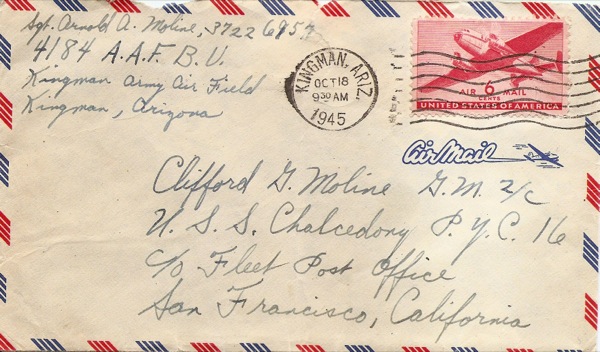 Sgt. Arnold A. Moline, 37226957
4184 A.A.F.B.U.
Kingman Army Air Field
Kingman, Arizona
KINGMAN, ARIZ.
OCT 18
9 30 AM
1945
AIR 6 MAIL
CENTS
UNITED STATES OF AMERICA
Air Mail
Clifford G. Moline G.M. 2/c
U. S. S. Chalcedony P.Y.C. 16
c/o Fleet Post Office
San Francisco, California